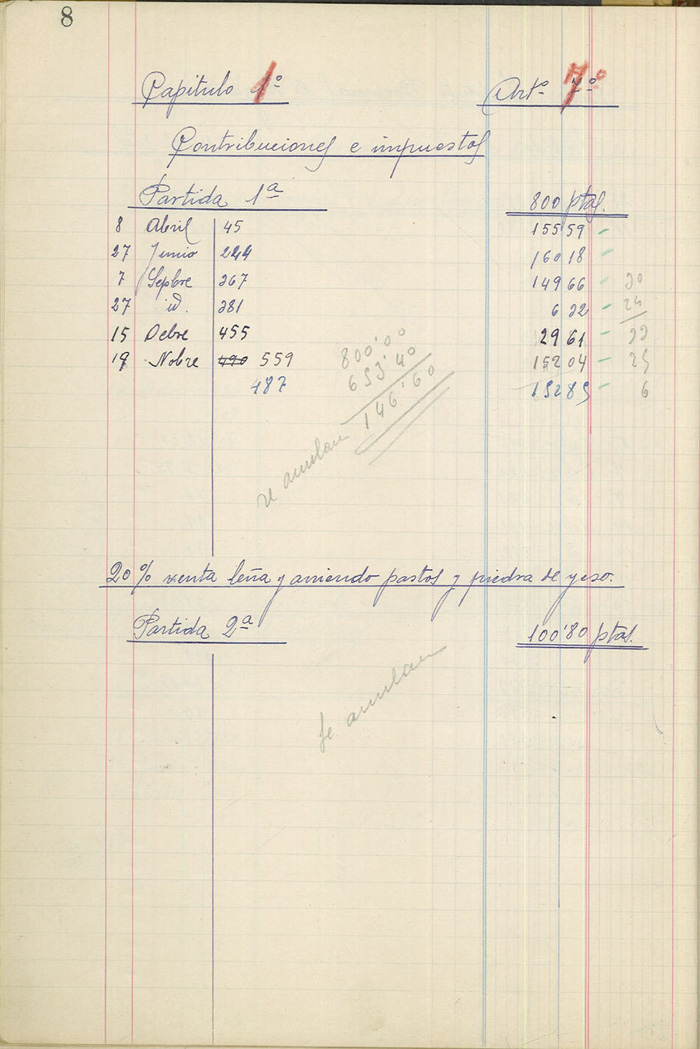 8
Capitulo 1º Artº 7º
Contribuciones e impuestos
Partida 1ª 800 ptas.
8 Abril 45 155 59 -
27 Junio 224 160 18 -
7 Sepbre 367 149 66 - 20
27 id. 381 6 22 - 24
15 Octbre 455 29 61 - 22
19 Nobre 490 559 152 04 - 25
487 152 85 - 6
800'00
653'40
146'60
se anulan
20% venta leña y arriendo pastos y piedra de yeso.
Partida 2ª 100'80 ptas.
Se anulan